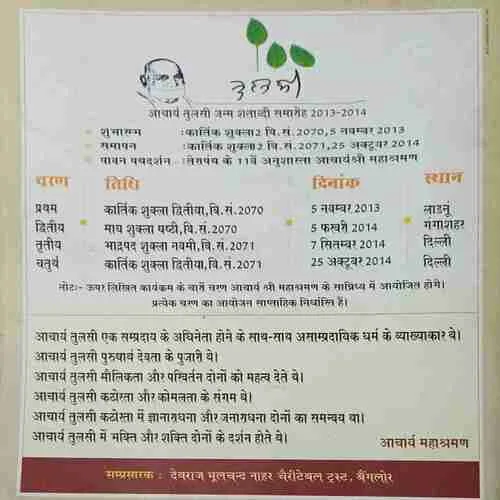 तुलसी
आचार्य तुलसी जन्म शताब्दी समारोह 2013-2014
शुभारम्भ : कार्तिक शुक्ला 2 वि.सं. 2070, 5 नवम्बर 2013
समापन : कार्तिक शुक्ला 2 वि.सं. 2071, 25 अक्टूबर 2014
पावन पथदर्शन : तेरापंथ के 11वें अनुशास्ता आचार्यश्री महाश्रमण
चरण तिथि दिनांक स्थान
प्रथम कार्तिक शुक्ला द्वितीया, वि.सं. 2070 5 नवम्बर 2013 लाडनूं
द्वितीय माघ शुक्ला षष्ठी, वि.सं. 2070 5 फरवरी 2014 गंगाशहर
तृतीय भाद्रपद शुक्ला नवमी, वि.सं. 2071 7 सितम्बर 2014 दिल्ली
चतुर्थ कार्तिक शुक्ला द्वितीया, वि.सं. 2071 25 अक्टूबर 2014 दिल्ली
नोट:- ऊपर लिखित कार्यक्रम के चारों चरण आचार्य श्री महाश्रमण के सान्निध्य में आयोजित होंगे।
प्रत्येक चरण का आयोजन साप्ताहिक निर्धारित हैं।
आचार्य तुलसी एक सम्प्रदाय के अधिनेता होने के साथ-साथ असाम्प्रदायिक धर्म के व्याख्याकार थे।
आचार्य तुलसी पुरुषार्थ देवता के पुजारी थे।
आचार्य तुलसी मौलिकता और परिवर्तन दोनों को महत्व देते थे।
आचार्य तुलसी कठोरता और कोमलता के संगम थे।
आचार्य तुलसी कठोरता में ज्ञानाराधना और जनाराधना दोनों का समन्वय था।
आचार्य तुलसी में भक्ति और शक्ति दोनों के दर्शन होते थे।
आचार्य महाश्रमण
सम्प्रसारक : देवराज मूलचन्द नाहर चैरीटेबल ट्रस्ट, बैंगलोर